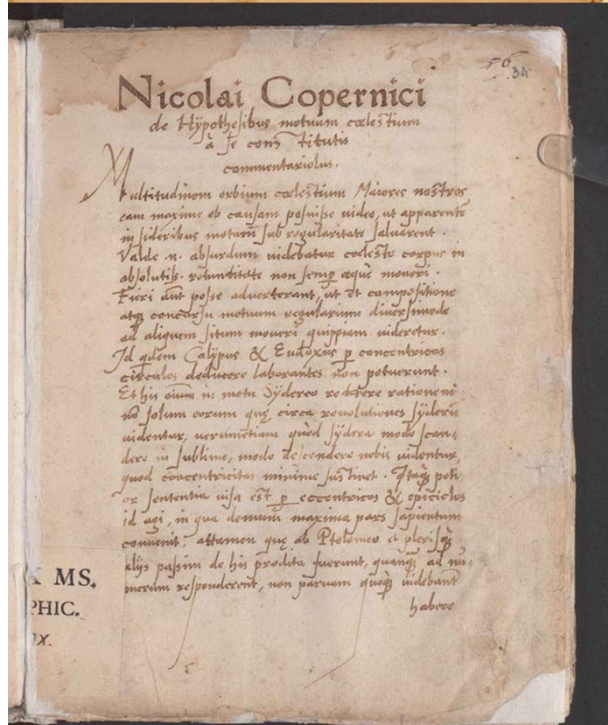 56
34
Nicolai Copernici
de Hÿpothesibus motuum cœlestium
à se constitutis
commentariolus.
Multitudinem orbium cœlestium Maiores nostros
eam maxime ob causam posuisse video, ut apparentē
in sideribus motum sub regularitate salvarent.
Valde .n. absurdum uidebatur cœleste corpus in
absolutiss. rotunditate non semp æque moueri.
Fieri aūt posse aduerterant, ut et compositione
atq concursu motuum regularium diuersimode
ad aliquem situm moueri quippiam uideretur.
Id qdem Calÿpus & Eudoxus p concentricos
circulos deducere laborantes non potuerunt.
Et his oium in motu Sÿdereo reddere rationem
nō solum eorum quę circa reuolutiones sÿderū
uidentur, uerumetiam quod sÿdera modo scan-
dere in sublime, modo descendere nobis uidentur,
quod concentricitas minime sustinet. Itaq poti-
or sententia uisa est p eccentricos & epiciclos
id agi, in qua demum maxima pars sapientum
conuenit, attamen quę ab Ptolemeo et plerisq
alijs passim de his prodita fuerunt, quanq ad nu-
merum responderent, non paruam quoq uidebant
habere
X MS.
PHIC.
IX.